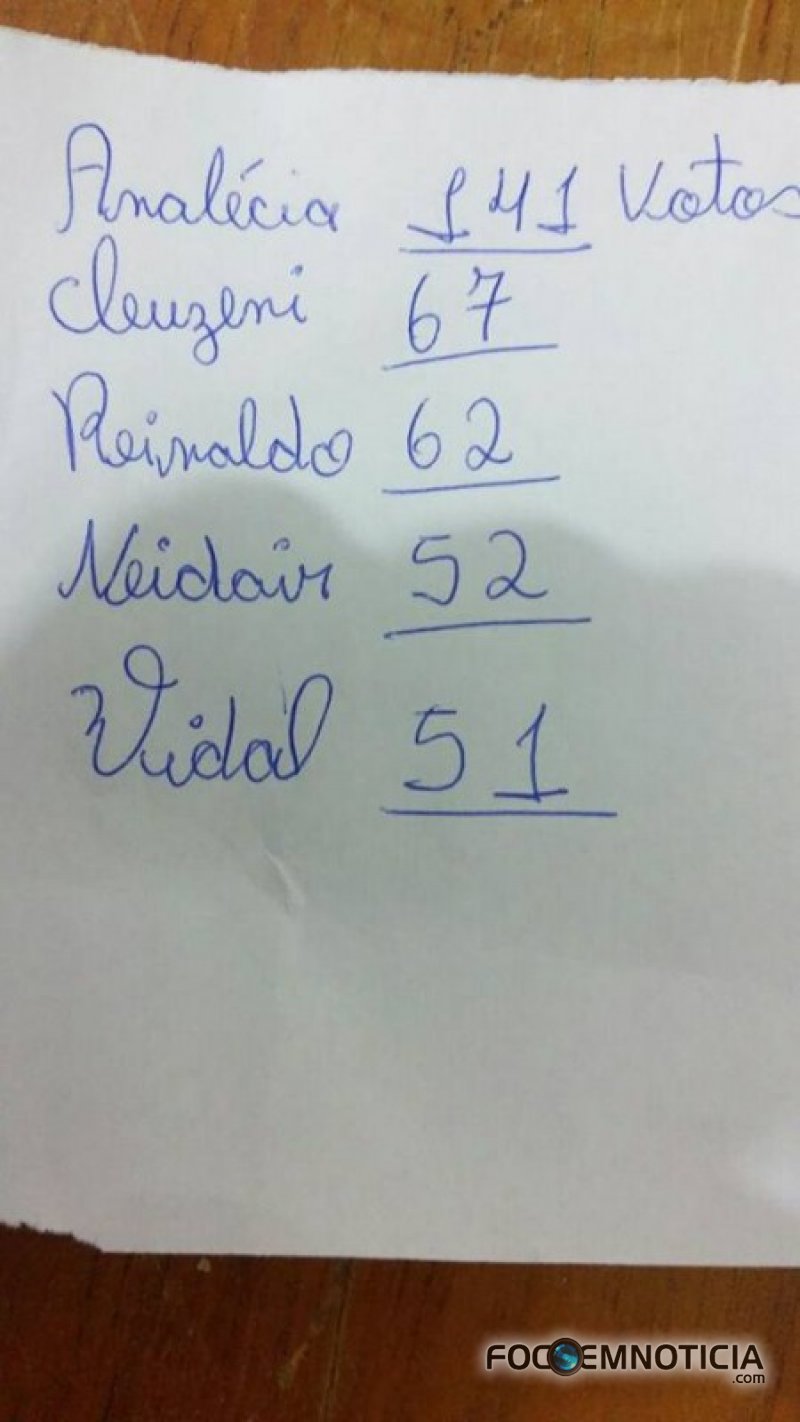 Analécia 141 Votos
Cleuzeni 67
Reinaldo 62
Neidair 52
Vidal 51
FOCOEMNOTICIA
.com